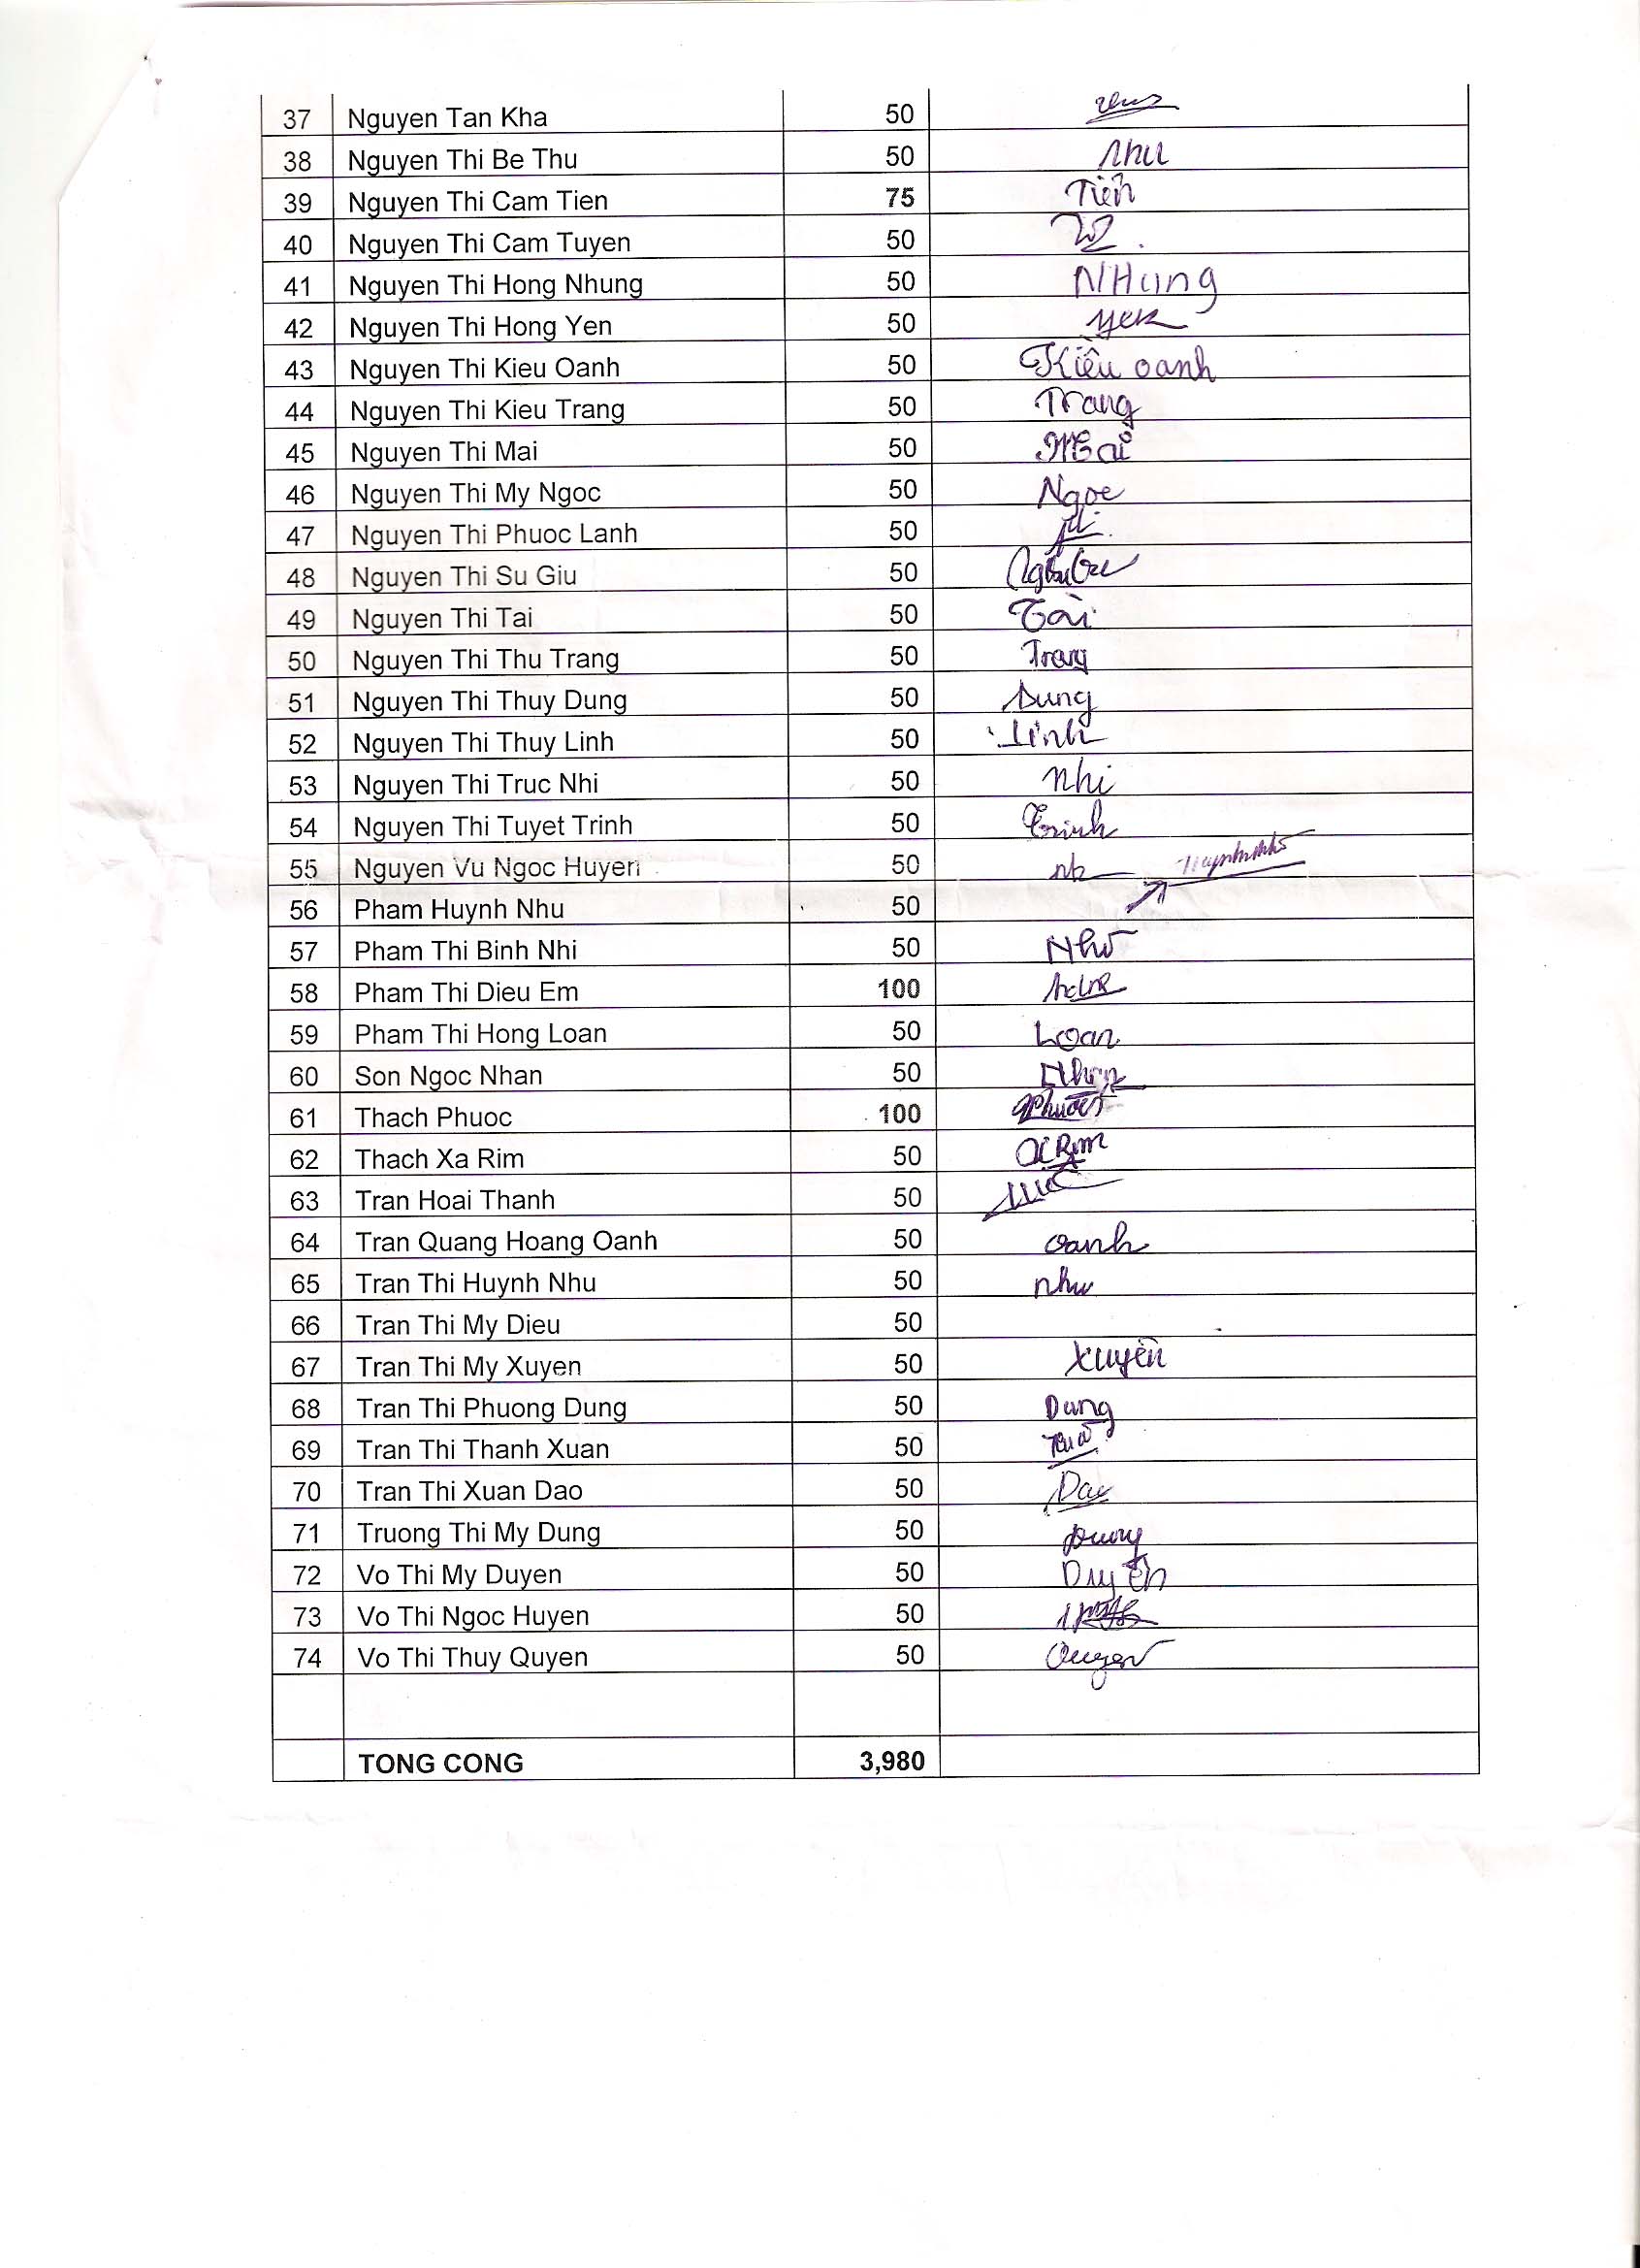 37 Nguyen Tan Kha 50
38 Nguyen Thi Be Thu 50 Thu
39 Nguyen Thi Cam Tien 75 Tiên
40 Nguyen Thi Cam Tuyen 50
41 Nguyen Thi Hong Nhung 50 NHung
42 Nguyen Thi Hong Yen 50 yen
43 Nguyen Thi Kieu Oanh 50 Kiều oanh
44 Nguyen Thi Kieu Trang 50 Trang
45 Nguyen Thi Mai 50 Mai
46 Nguyen Thi My Ngoc 50 Ngoc
47 Nguyen Thi Phuoc Lanh 50
48 Nguyen Thi Su Giu 50
49 Nguyen Thi Tai 50 Tài
50 Nguyen Thi Thu Trang 50 Trang
51 Nguyen Thi Thuy Dung 50 Dung
52 Nguyen Thi Thuy Linh 50 Linh
53 Nguyen Thi Truc Nhi 50 Nhi
54 Nguyen Thi Tuyet Trinh 50 Trinh
55 Nguyen Vu Ngoc Huyen 50
56 Pham Huynh Nhu 50
57 Pham Thi Binh Nhi 50
58 Pham Thi Dieu Em 100
59 Pham Thi Hong Loan 50 Loan
60 Son Ngoc Nhan 50 Nhan
61 Thach Phuoc 100 Phước
62 Thach Xa Rim 50 Rim
63 Tran Hoai Thanh 50
64 Tran Quang Hoang Oanh 50 Oanh
65 Tran Thi Huynh Nhu 50 nhu
66 Tran Thi My Dieu 50
67 Tran Thi My Xuyen 50 Xuyên
68 Tran Thi Phuong Dung 50 Dung
69 Tran Thi Thanh Xuan 50
70 Tran Thi Xuan Dao 50 Dao
71 Truong Thi My Dung 50 Dung
72 Vo Thi My Duyen 50 Duyên
73 Vo Thi Ngoc Huyen 50
74 Vo Thi Thuy Quyen 50 Quyen
TONG CONG 3,980